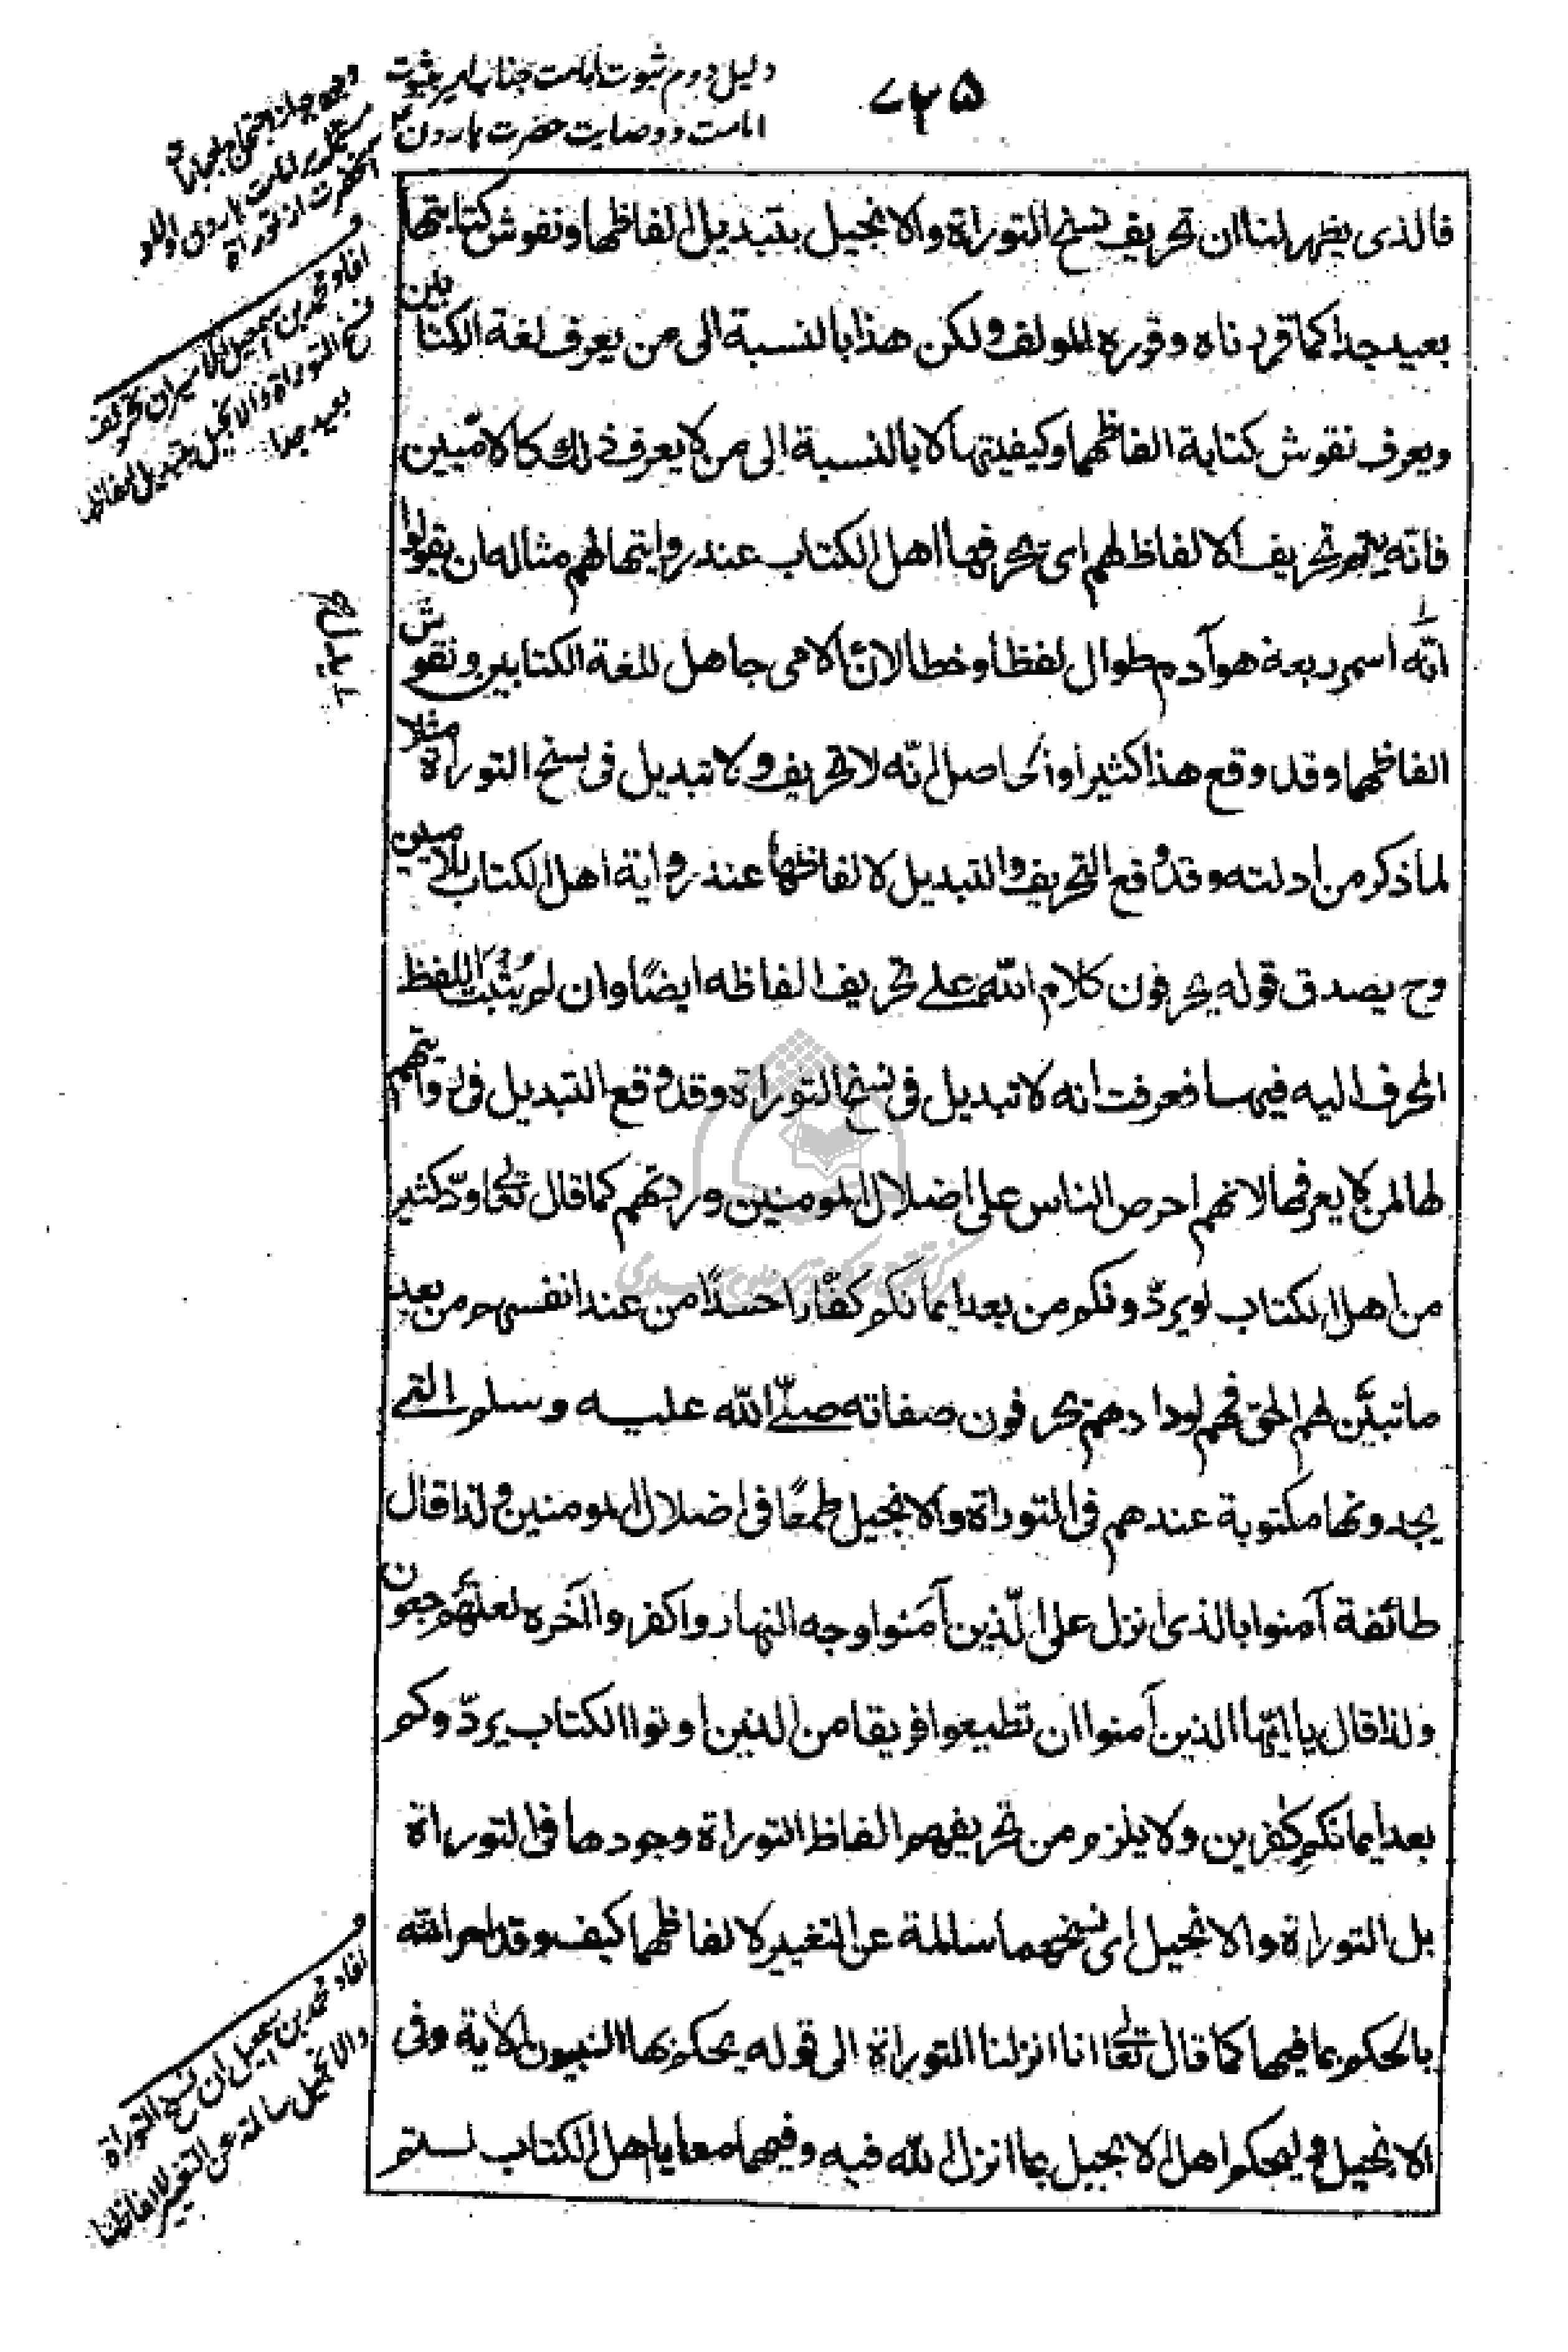 ۷۲۵
دلیل دوم ثبوت امامت جناب امیر بثبوت
امامت و وصایت حضرت هارون
فالذی یظهر لنا ان تحریف نسخ التوراة والانجیل بتبدیل الفاظها ونقوش کتابتها
بعید جدا کما قررناه وقرره المولف ولکن هذا بالنسبة الی من یعرف لغة الکتابین
ویعرف نقوش کتابة الفاظهما وکیفیتها لا بالنسبة الی من لا یعرف ذلك کالامّیین
فانّه یتم تحریف الالفاظ لهم ای یحرفها اهل الکتاب عند روایتها لهم مثاله ان یقولوا
انّه اسمر ربعة هو آدم طوال لفظا وخطا لانّ الامی جاهل للغة الکتابین ونقوش
الفاظهما وقد وقع هذا کثیرا والحاصل انّه لا تحریف ولا تبدیل فی نسخ التوراة مثلا
لما ذکر من ادلته وقد وقع التحریف والتبدیل لالفاظها عند روایة اهل الکتاب للامیین
وح یصدق قوله یحرفون کلام الله علی تحریف الفاظه ایضًا وان لم یُثبت اللفظ
المحرف الیه فیهما فعرفت انه لا تبدیل فی نسخ التوراة وقد وقع التبدیل فی روایتهم
لها لمن لا یعرفها لانهم احرص الناس علی اضلال المومنین وردتهم کما قال تعالی ودّ کثیر
من اهل الکتاب لو یردّونکم من بعد ایمانکم کفّارا حسدًا من عند انفسهم من بعد
ما تبیّن لهم الحق فهم لودادهم یحرفون صفاته صلّی الله علیه وسلم التی
یجدونها مکتوبة عندهم فی التوراة والانجیل طمعًا فی اضلال المومنین ولذا قال
طائفة آمنوا بالذی انزل علی الّذین آمنوا وجه النهار واکفروا آخره لعلّهم یرجعون
ولذا قال یا ایّها الذین آمنوا ان تطیعوا فریقا من الذین اوتوا الکتاب یردّوکم
بعد ایمانکم کفرین ولا یلزم من تحریفهم الفاظ التوراة وجودها فی التوراة
بل التوراة والانجیل ای نسخهما سالمة عن التغییر لالفاظهما کیف وقد امر الله
بالحکم بما فیها کما قال تعالی انا انزلنا التوراة الی قوله یحکم بها النبیون الایة وفی
الانجیل ولیحکم اهل الانجیل بما انزل الله فیه وفیهما معا یا اهل الکتاب لستم
افاد محمد بن اسمعیل الامیر ان تحریف
نسخ التوراة والانجیل بتبدیل الفاظ
بعید جدا
افاد محمد بن اسمعیل ان نسخ التوراة
والانجیل سالمة عن التغییر لالفاظها